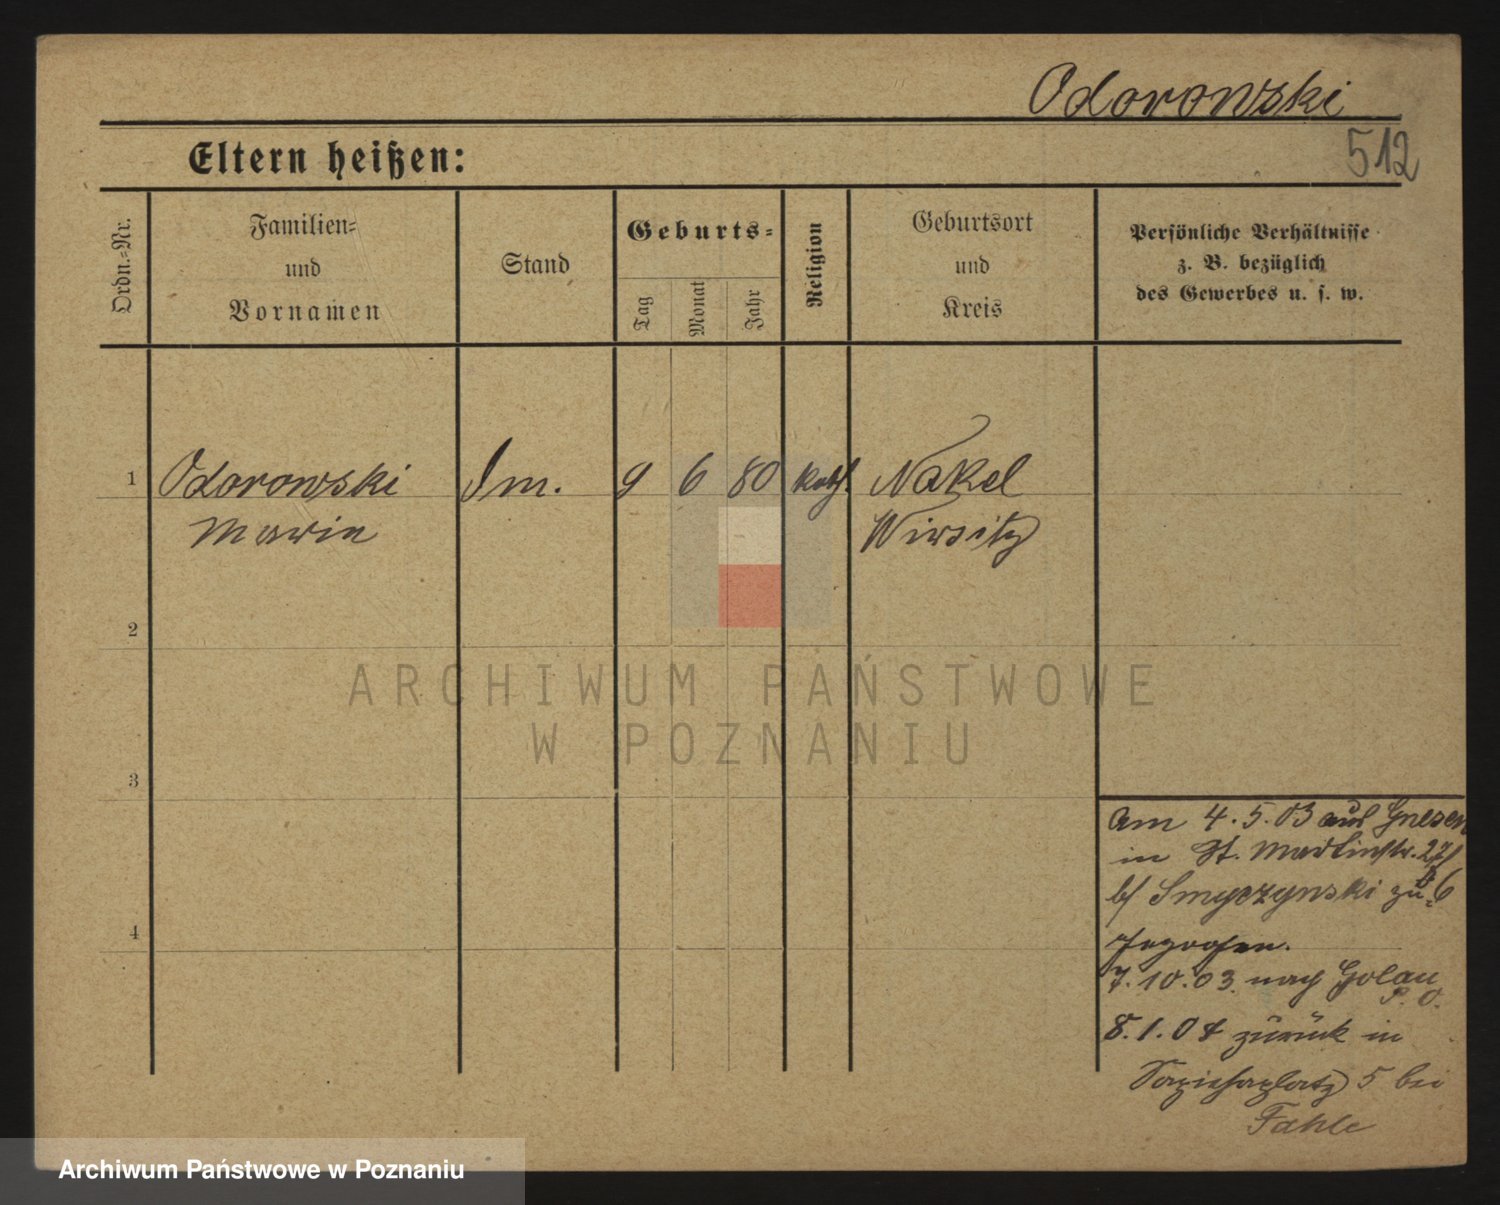 Odorowski
512
Eltern heißen:
Ordn.-Nr.
Familien-
und
Vornamen
Stand
Geburts-
Tag
Monat
Jahr
Religion
Geburtsort
und
Kreis
Persönliche Verhältnisse
z. B. bezüglich
des Gewerbes u. s. w.
1 Odorowski 9 6 80 kath. Nakel
Marie Wirsitz
2
3
4
Am 4.5.03 aus Gnesen
in St. Martinstr. 27
b/ Smyczynski zu-
gezogen.
7.10.03 nach Golau
P. O.
8.1.04 zurück in
Sapiehaplatz 5 bei
Fahle
ARCHIWUM PAŃSTWOWE
W POZNANIU
Archiwum Państwowe w Poznaniu